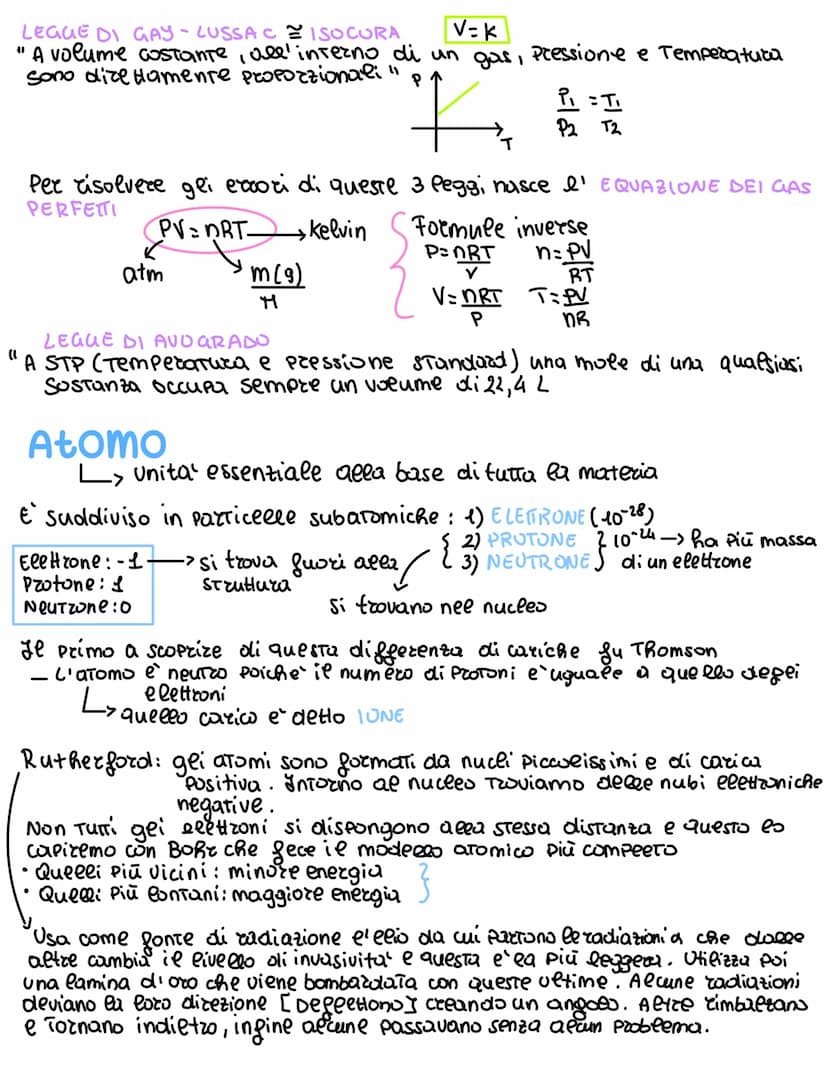 LEGGE DI GAY-LUSSAC ≅ ISOCORA V=K
"A volume costante, all'interno di un gas, Pressione e Temperatura
sono direttamente proporzionali"
P
T
P1/P2 = T1/T2
Per risolvere gli errori di queste 3 leggi nasce l' EQUAZIONE DEI GAS
PERFETTI
PV=nRT → kelvin
atm
m(g)/M
Formule inverse
P=nRT/V n=PV/RT
V=nRT/P T=PV/nR
LEGGE DI AVOGRADO
"A STP (Temperatura e pressione standard) una mole di una qualsiasi
sostanza occupa sempre un volume di 22,4 L
Atomo
↳ unità essenziale alla base di tutta la materia
E' suddiviso in particelle subatomiche: 1) ELETTRONE (10⁻²⁸)
2) PROTONE
3) NEUTRONE
10⁻²⁴ → ha più massa
di un elettrone
Elettrone: -1 → si trova fuori alla
struttura
Protone: 1
Neutrone: 0
si trovano nel nucleo
Il primo a scoprire di questa differenza di cariche fu Thomson
– L'atomo è neutro poiché il numero di protoni è uguale a quello degli
elettroni
↳ quello carico è detto IONE
Rutherford: gli atomi sono formati da nuclei piccolissimi e di carica
positiva. Intorno al nucleo troviamo delle nubi elettroniche
negative.
Non tutti gli elettroni si dispongono alla stessa distanza e questo lo
capiremo con Bohr che fece il modello atomico più completo
• Quelli più vicini: minore energia
• Quelli più lontani: maggiore energia
Usa come fonte di radiazione l'elio da cui partono le radiazioni α che dalle
altre cambia il livello di invasività e questa è la più leggera. Utilizza poi
una lamina d'oro che viene bombardata con queste ultime. Alcune radiazioni
deviano la loro direzione [Deflettono] creando un angolo. Altre rimbalzano
e tornano indietro, infine alcune passavano senza alcun problema.